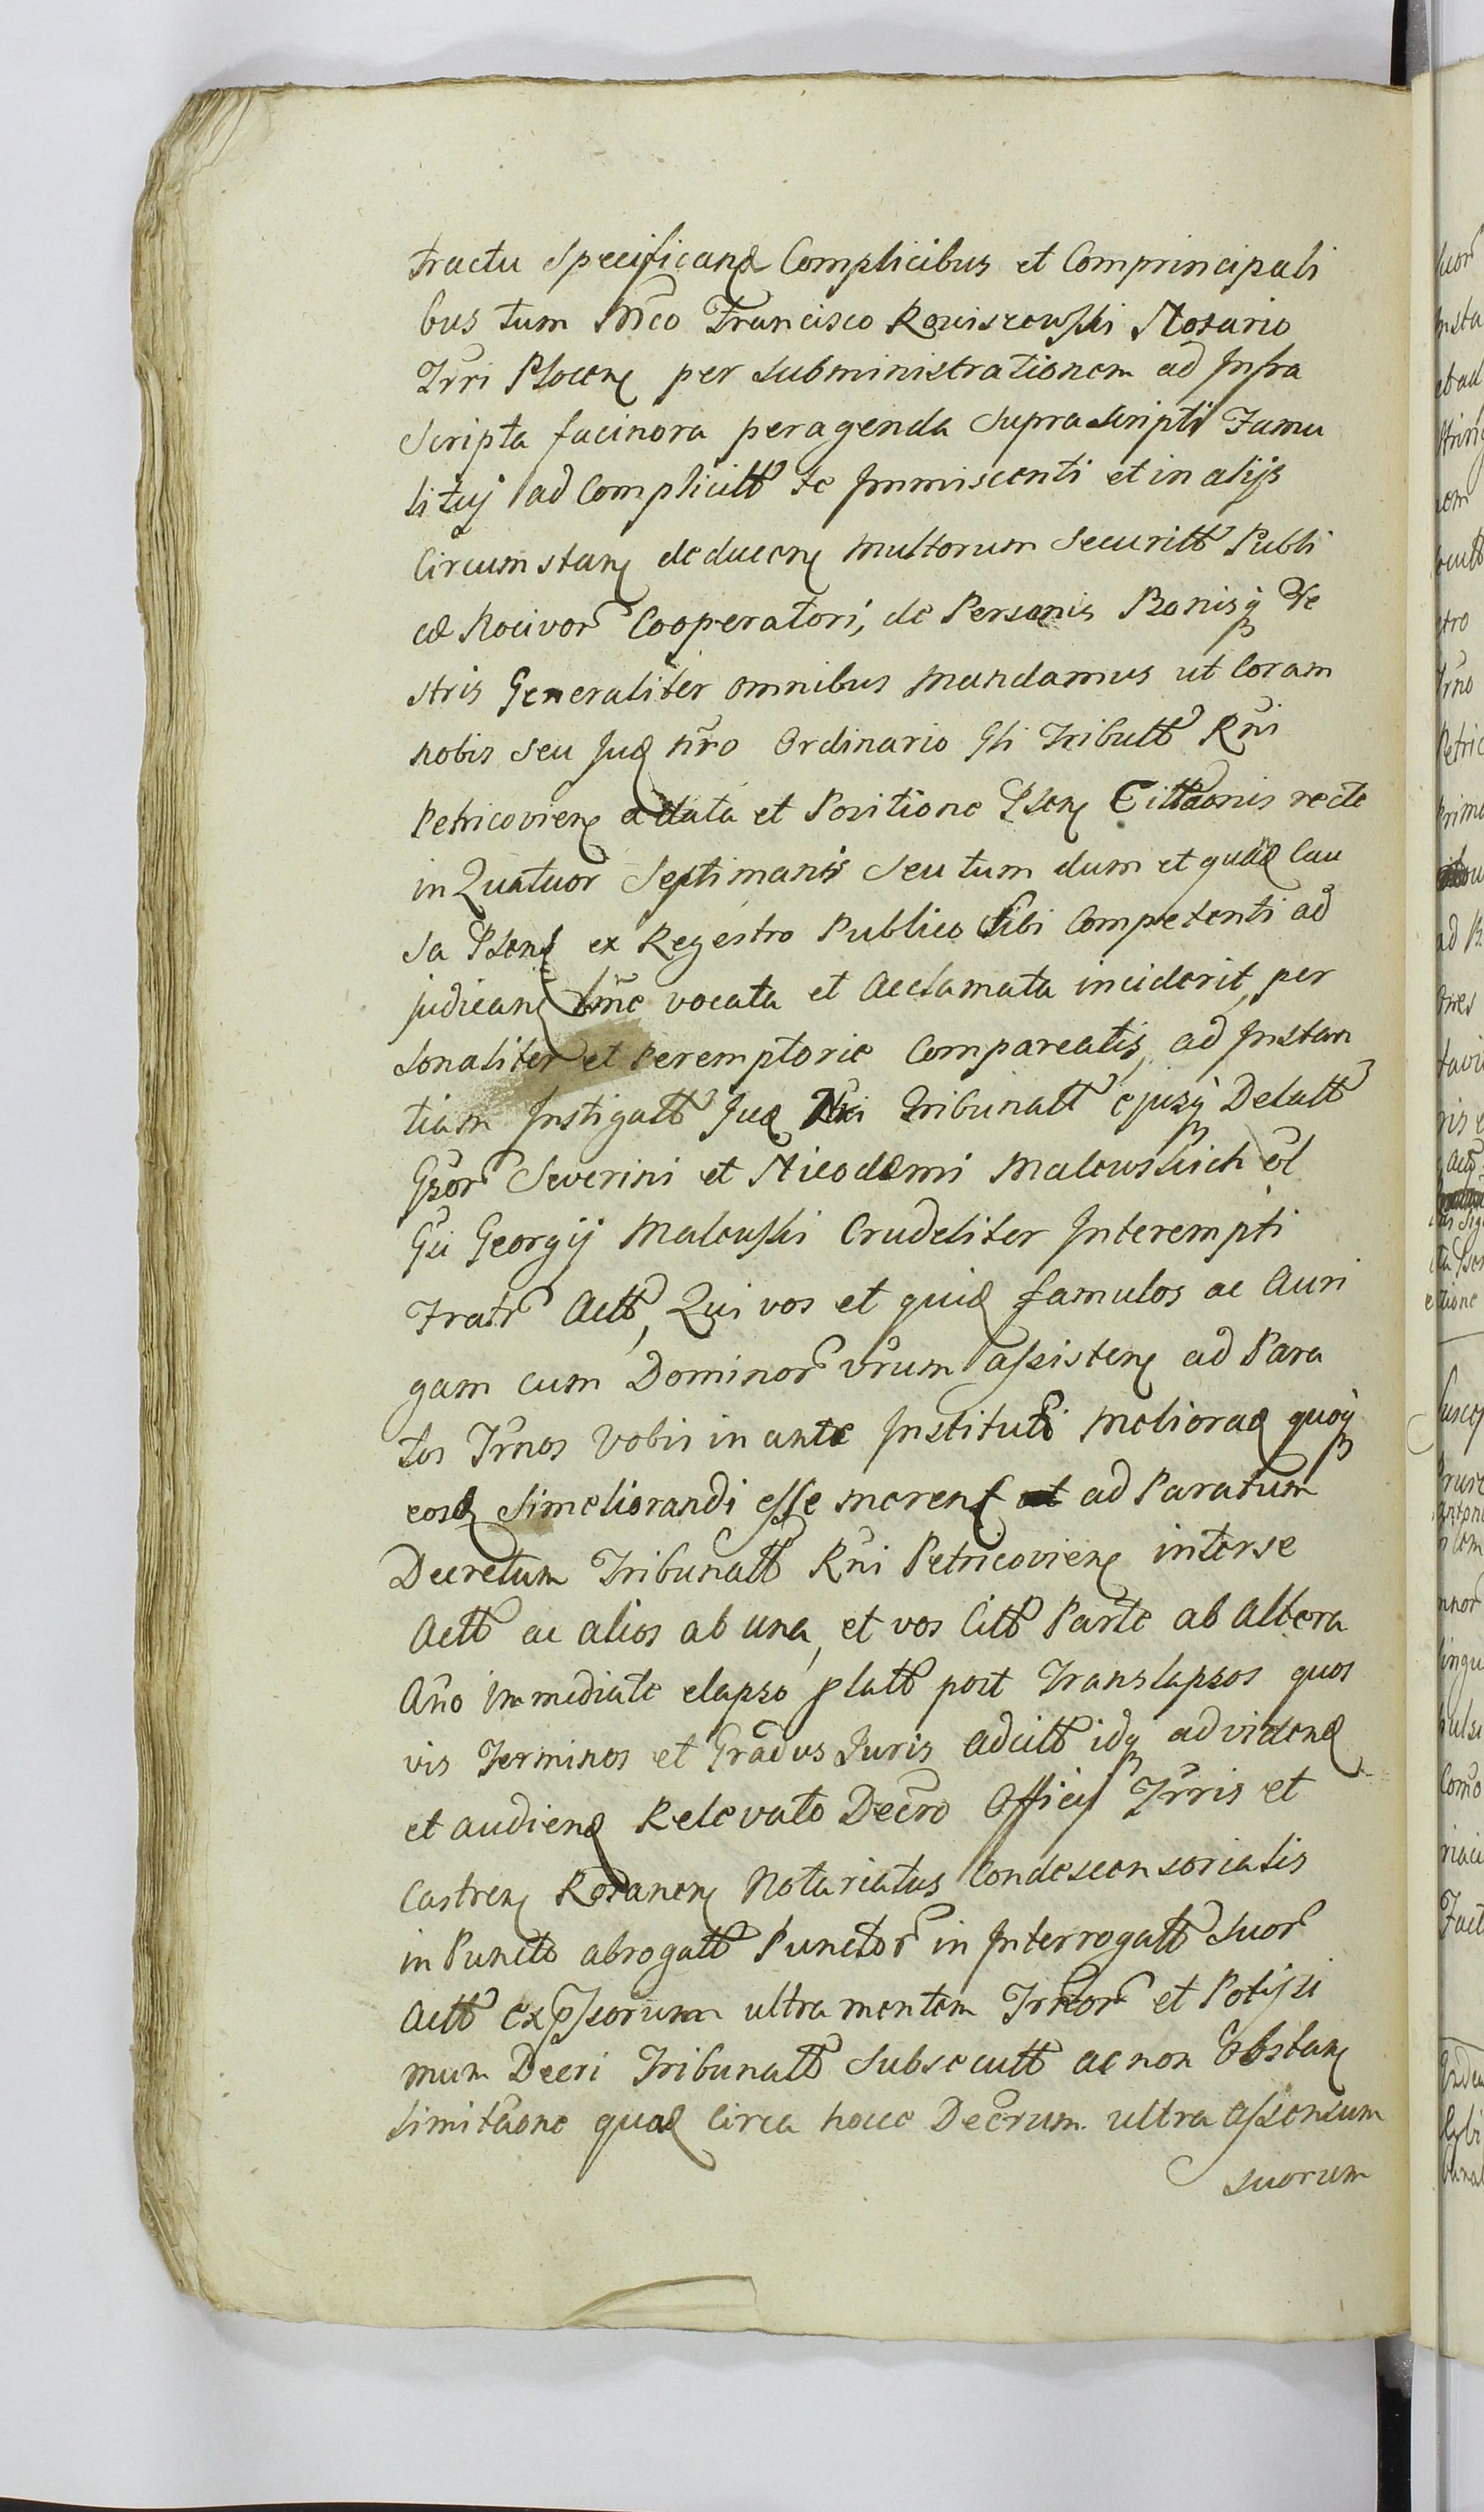 tractu specificand Complicibus et Comprincipali
bus tum Mco Francisco Rowiszewski Notario
Trri Plocen per subministrationem ad Infra
scripta facinora peragenda supra scripti Famu
litij ad Complicitt se Immiscenti et in alijs
Circumstan deducen multorum securitt Publi
cæ Nocivor Cooperatori, de Personis Bonisq Ve
stris Generaliter omnibus mandamus ut Coram
nobis seu Jud nro Ordinario Gli Tributt Rni
Petricovien a data et Positione Psen Cittaonis recte
in Quatuor Septimanis seu tum dum et qudo Cau
sa Psens ex Regestro Publico sibi Competenti ad
judicand vocata et Acclamata inciderit, per
sonaliter et Peremptorie Compareatis, ad Instan
tiam Instigatt Jud Tribunatt ejusq Delatt
Gsor Severini et Nicodemi Malewskich ol
Gsi Georgij Malewski Crudeliter Interempti
Fratr Actt, Qui vos et quid famulos ac Auri
gam cum Dominor vrum assisten ad Para
tos Trnos Vobis in ante Institut meliorad quoq
eosd si meliorandi esse meren ad Paratum
Decretum Tribunatt Rni Petricovien inter se
Actt ac alios ab una, et vos Citt Parte ab Altera
Ano Immediate elapso platt post Translapsos quos
vis Terminos et Gradus Juris adcitt idq ad viden
et audiend Relevato Decro Officij Trris et
Castren Rozanen Notariatus Condescensorialis
in Puncto abrogatt Punctor in Interrogatt suor
Actt expssorum ultra mentem et Potissi
mum Decri Tribunatt subsecutt ac non Obstan
limitaone quad Circa hocce Decrum ultra Assensum
suorum